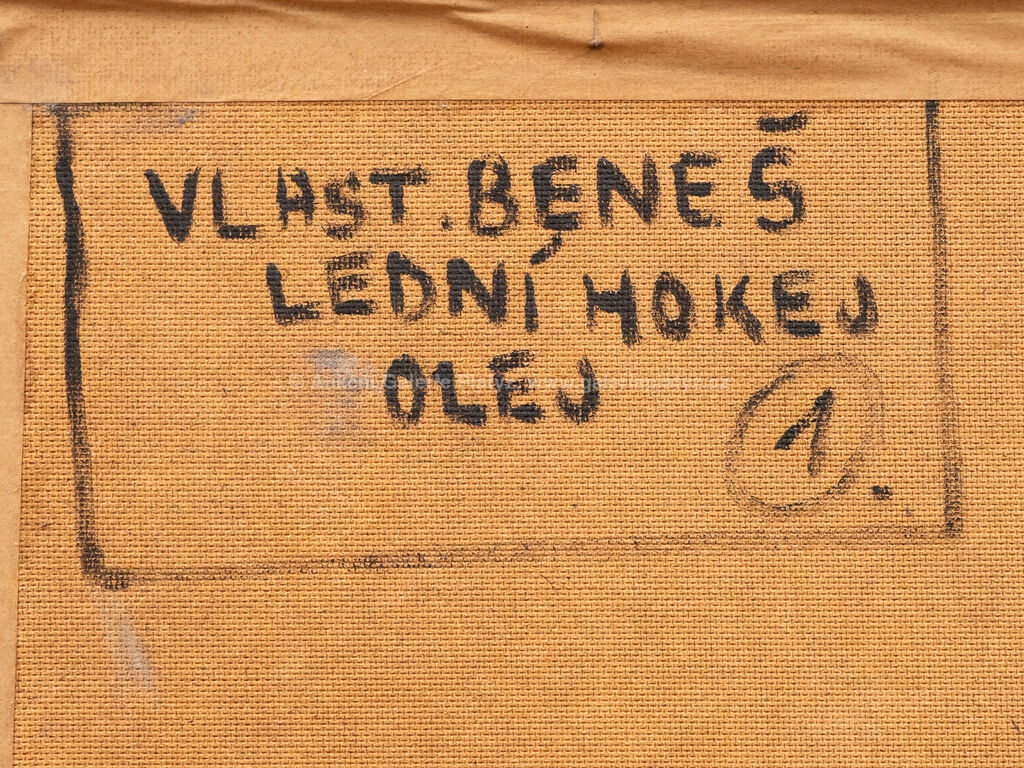 VLAST. BENEŠ
LEDNÍ HOKEJ
OLEJ
1.